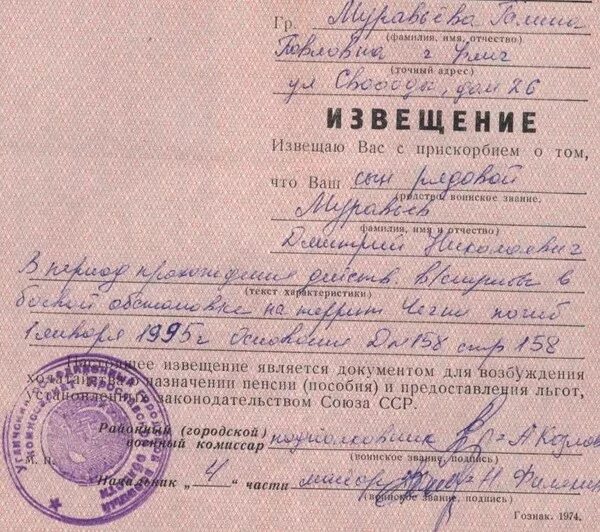 Гр. Муравьёва Галина
(фамилия, имя, отчество)
Павловна г Углич
(точный адрес)
ул Свободы, дом 26
ИЗВЕЩЕНИЕ
Извещаю Вас с прискорбием о том,
что Ваш сын рядовой
родство, воинское звание.
Муравьёв
фамилия, имя и отчество)
Дмитрий Николаевич
В период прохождения действ. В/службы в
(текст характеристики)
боевой обстановке на террит Чечни погиб
1 января 1995г Основание Дн 158 стр 158
Настоящее извещение является документом для возбуждения
ходатайства о назначении пенсии (пособия) и предоставления льгот,
установленных законодательством Союза ССР.
Районный (городской)
военный комиссар подполковник А Козлов
(воинское звание, подпись)
М. П.
Начальник „4 части майор Н.
(воинское звание, подпись)
Гознак. 1974.